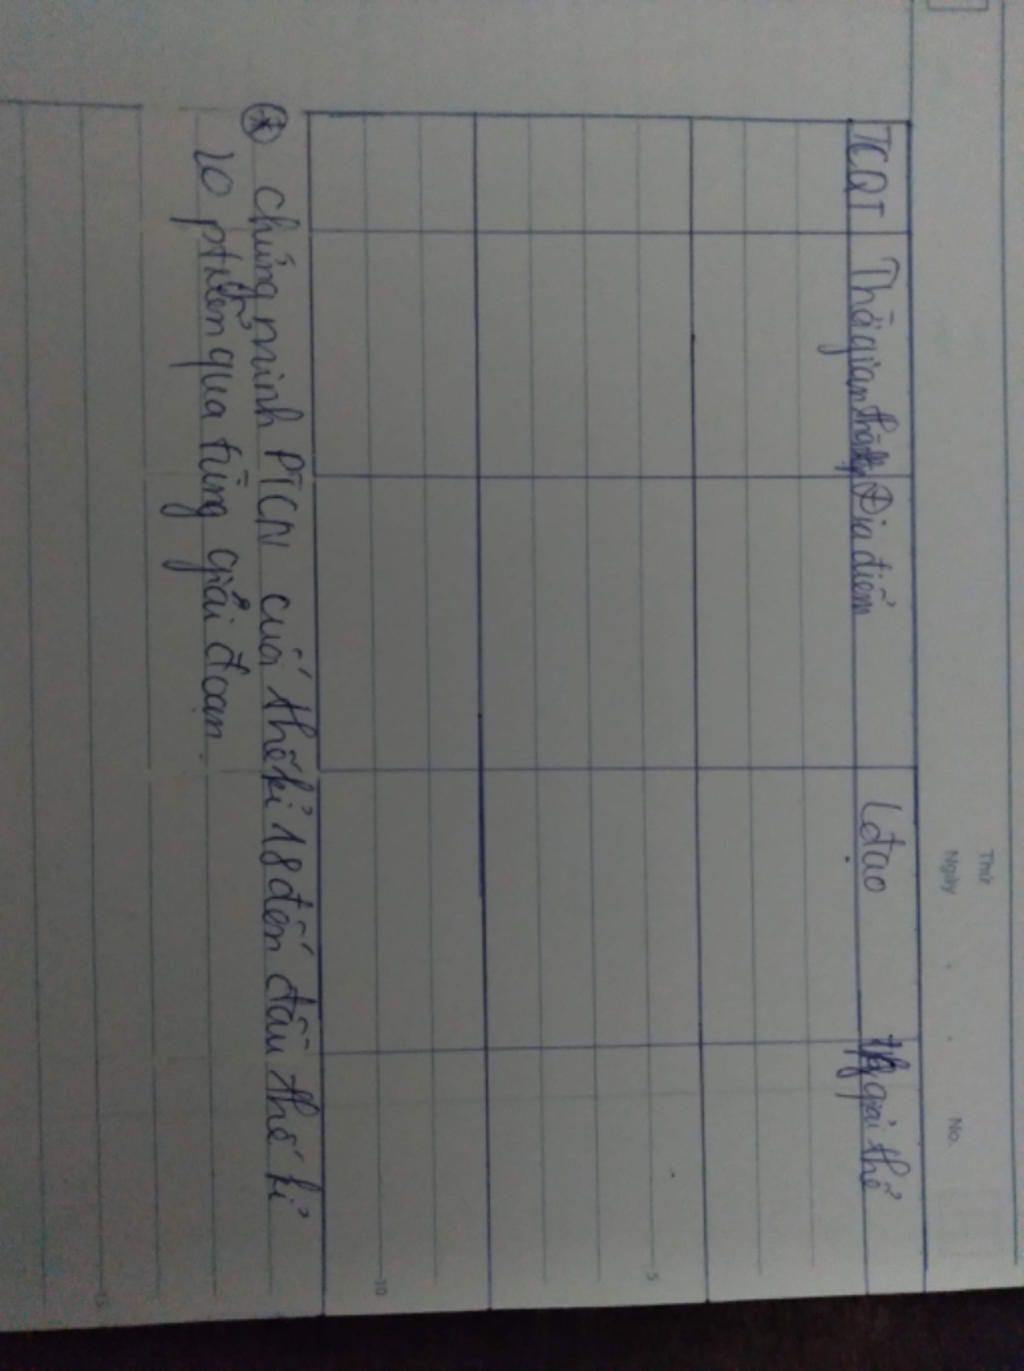 Thứ
Ngày
No.
TCQT
Thời gian thành lập
Địa điểm
Lđạo
giải thể
5
10
⊛ Chứng minh PTCN cuối thế kỉ 18 đến đầu thế kỉ
20 ptriển qua từng giải đoạn.
15